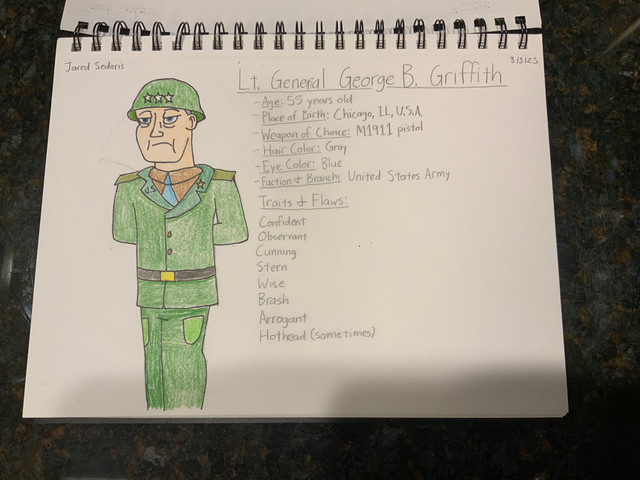 Jared Sedoris
3/3/25
Lt. General George B. Griffith
- Age: 55 years old
- Place of Birth: Chicago, IL, U.S.A.
- Weapon of Choice: M1911 pistol
- Hair Color: Gray
- Eye Color: Blue
- Faction & Branch: United States Army
Traits & Flaws:
Confident
Observant
Cunning
Stern
Wise
Brash
Arrogant
Hothead (sometimes)
U.S